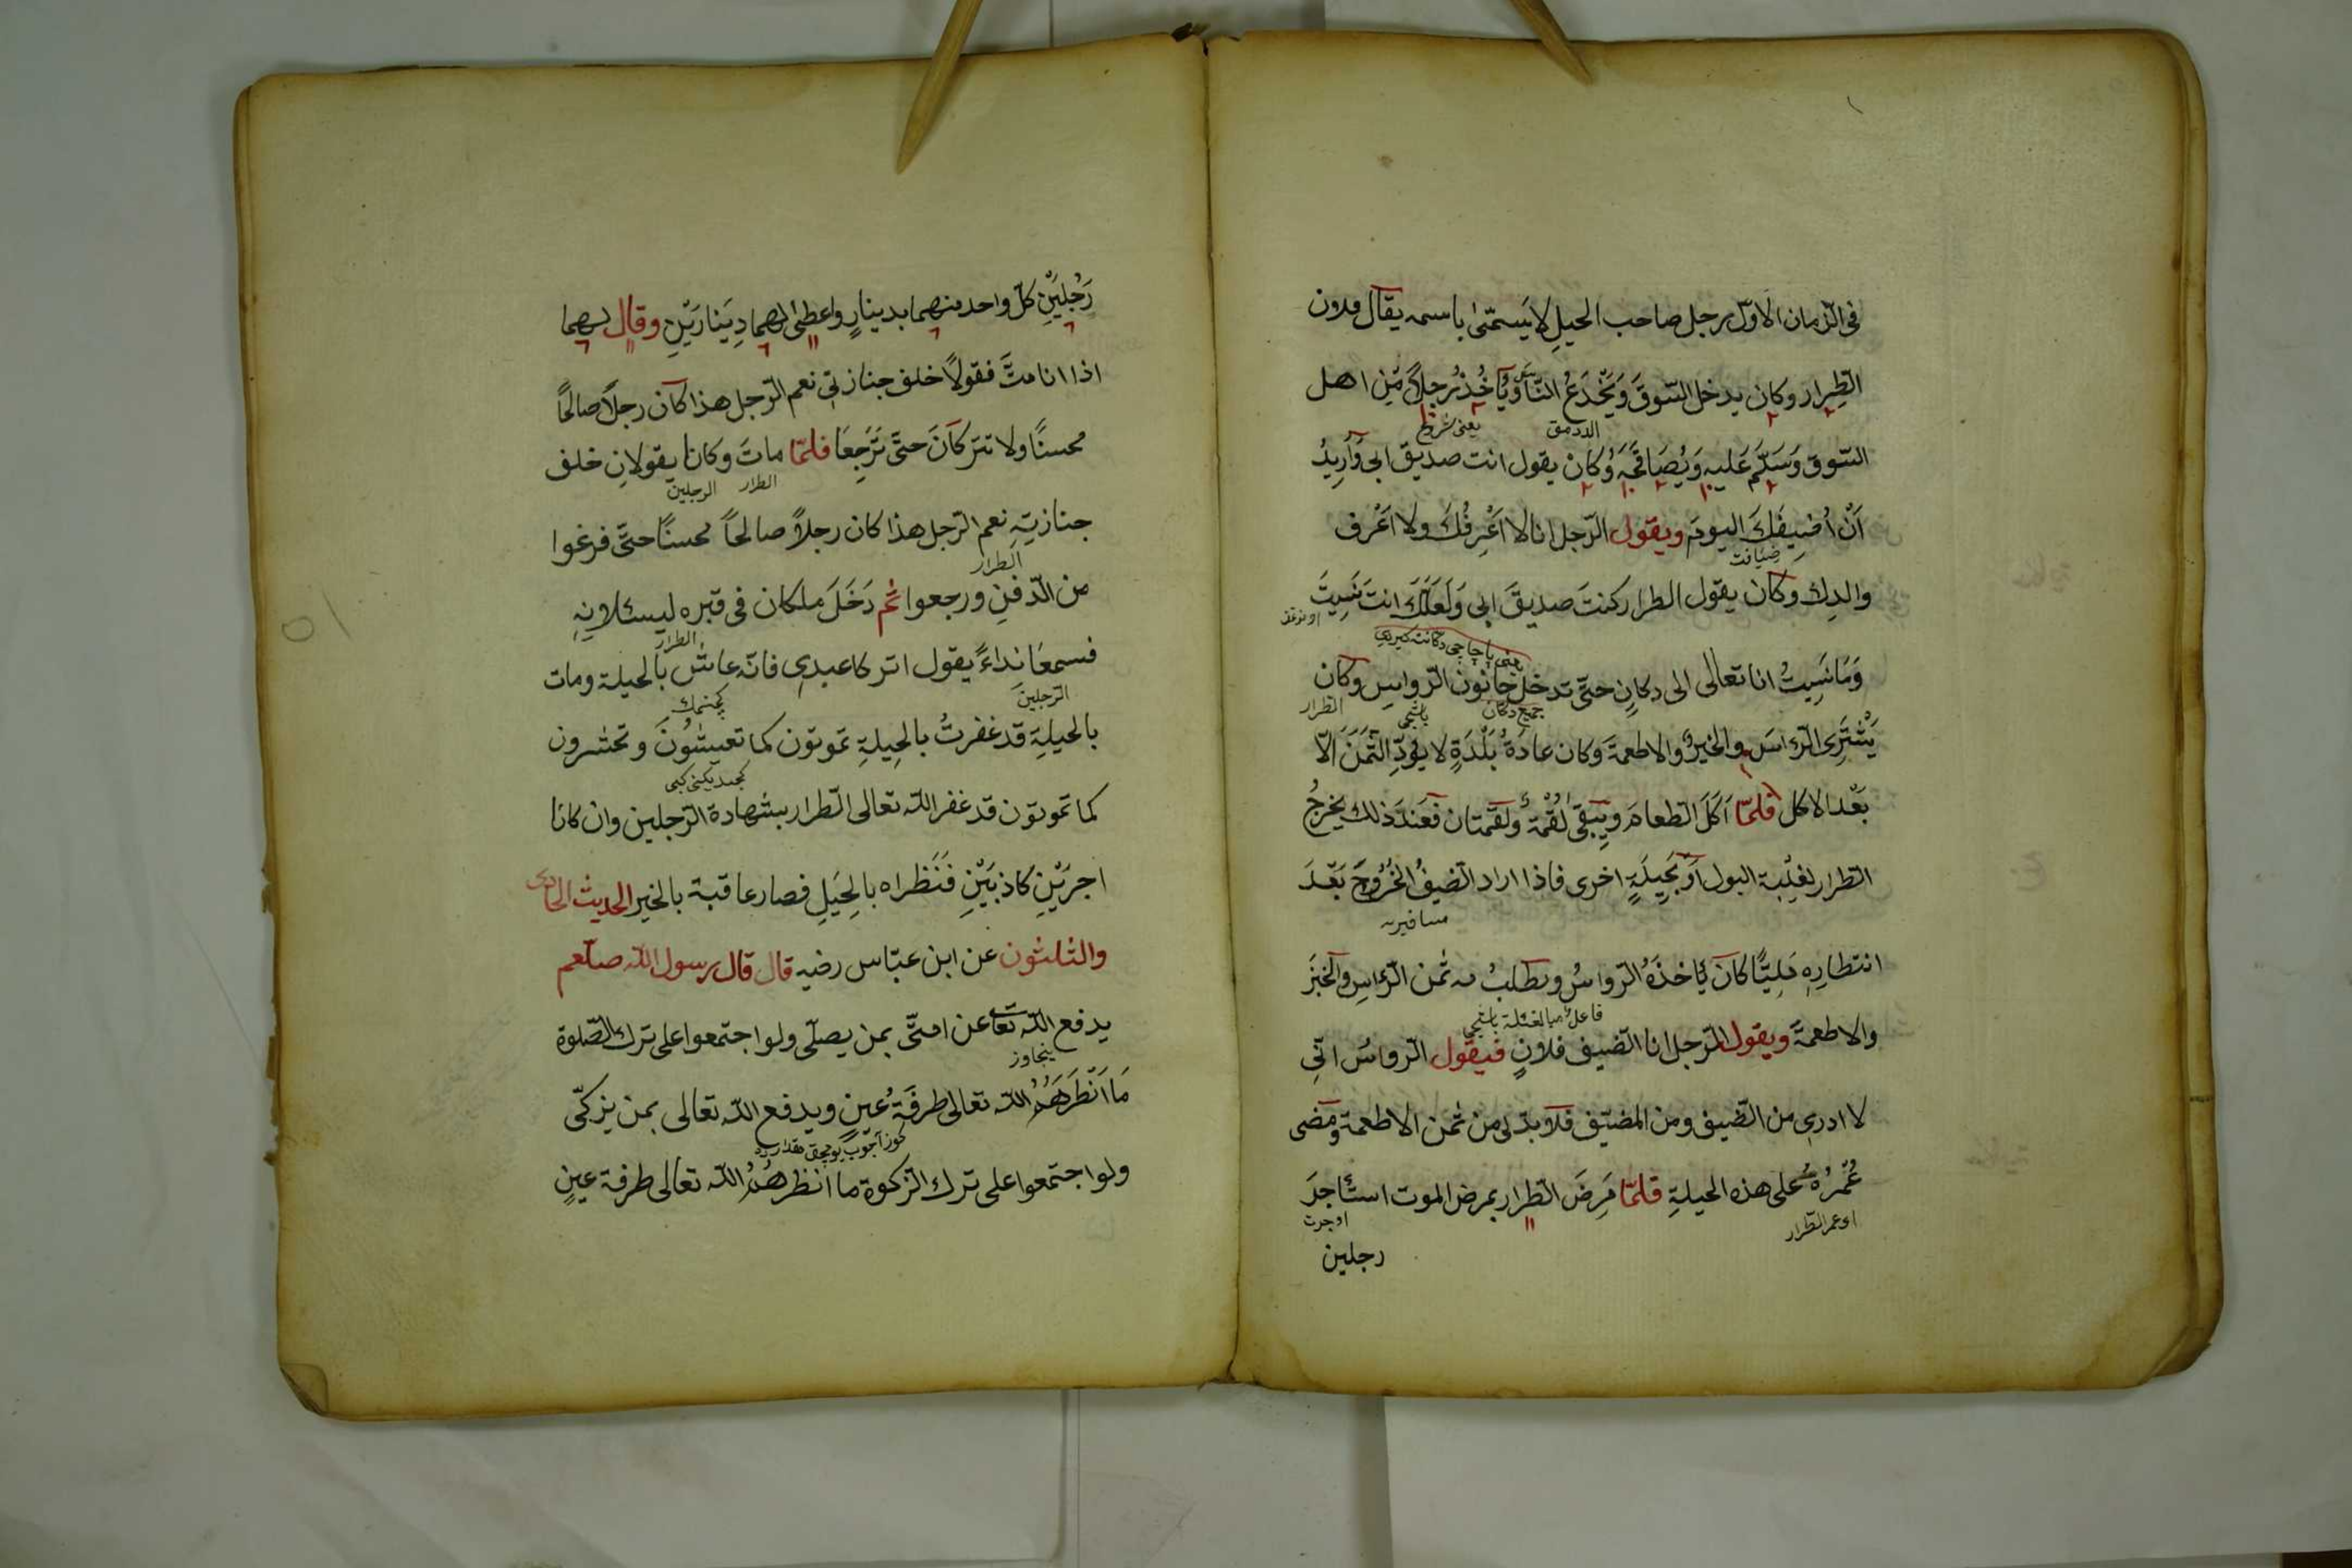 فى الزمان الاول رجل صاحب الحيلِ لا يسمّى باسمه يقال فلان
الطِرار وكان يدخل السّوقَ وَيَخْدَعُ النّاسَ وَيَأخُذُ رجلاً مِّن اهل
يعنى
السّوق وَسَلِّم عَليهِ وَيُصَافحَهُ وكان يقول انت صديق ابى وَاُرِيدُ
اَنْ اُضِيفَكَ اليومَ ويقول الرّجل انا لا اَعْرِفُكَ ولا اَعْرف
ضيافت
والدِك وكان يقول الطرار كنتَ صديقَ ابى وَلَعَلّكَ انتَ نَسِيتَ
وَمَا نَسِيتُ انا تعالى الى دكانٍ حتّى تدخل حانون الرّواسِ وكان
الطرار
يَشْتَرِى الرّاسَ والخبزَ والاطعمةَ وكان عادةُ بَلْدَةٍ لا يؤدّ الثّمَنَ الّا
بَعْد الاكل فلمّا اَكَلَ الطعامَ ويَبقى لُقْمَةٌ ولقمتان فعَندَ ذلك يخرجُ
الطرار لغلْبة البول اَوْ بَحِيلَةٍ اخرى فاذا اراد الضيفُ الخُرُوجَ بَعْدَ
مسافير
انتطارِهِ مَلِيًّا كانَ يأخذَهُ الرّواسُ ويطلبُ منه ثمن الرّاسِ والخبزَ
والاطعمةَ ويقول الرّجل انا الضيف فلانٍ فيقول الرواسُ انّى
لا ادرى من الضيف ومن المضيّف فلا بدّ لى من ثمن الاطعمة ومضى
عُمْرُهُ على هذه الحيلةِ فلمّا مَرِضَ الطرار بمرض الموت استأجرَ
اى عمر الطرار
اوجرت
رجلين
رَجُلَيْنِ كلّ واحد منهما بدينارٍ واعطى لهما دِينَارَيْنِ وقال لهما
اذا انا متَّ فقولاً خلف جنازتى نعم الرّجل هذا كان رجلاً صالحًا
محسنًا ولا تترَكانَ حتّى تَرْجِعَا فلمّا ماتَ وكانا يقولانِ خلف
الطرار
الرجلين
جنازتِهِ نعم الرّجل هذا كان رجلاً صالحاً محسنًا حتّى فرغوا
الطرار
من الدّفنِ ورجعوا ثم دَخَلَ ملكان فى قبره ليسئلانِهِ
الطرار
فسمعَا نداءً يقول اتركا عبدى فانّه عاش بالحيلة ومات
الرّجلين
بالحيلةِ قد غفرتُ بالحِيلةِ تموتون كما تعيشُونَ وتحشرون
كما تموتون قد غفر اللّه تعالى الطرار بشهادة الرّجلين وان كانا
اجرَيْنِ كاذبَيْنِ فَنَظراه بالحِيَلِ فصار عاقبة بالخير الحديث الحادى
والثلثون عن ابن عبّاس رضيه قال قال رسول اللّه صلّعم
يدفع اللّه تعا عن امتّى بمن يصلّى ولو اجتمعوا على ترك الصّلوة
يتجاوز
مَا اَنْظَرَهَُمُ اللّه تعالى طرفَةُ عين ويدفع اللّه تعالى بمن يزكّى
ولو اجتمعوا على ترك الزكوة ما انظرهُمُ اللّه تعالى طرفة عينٍ